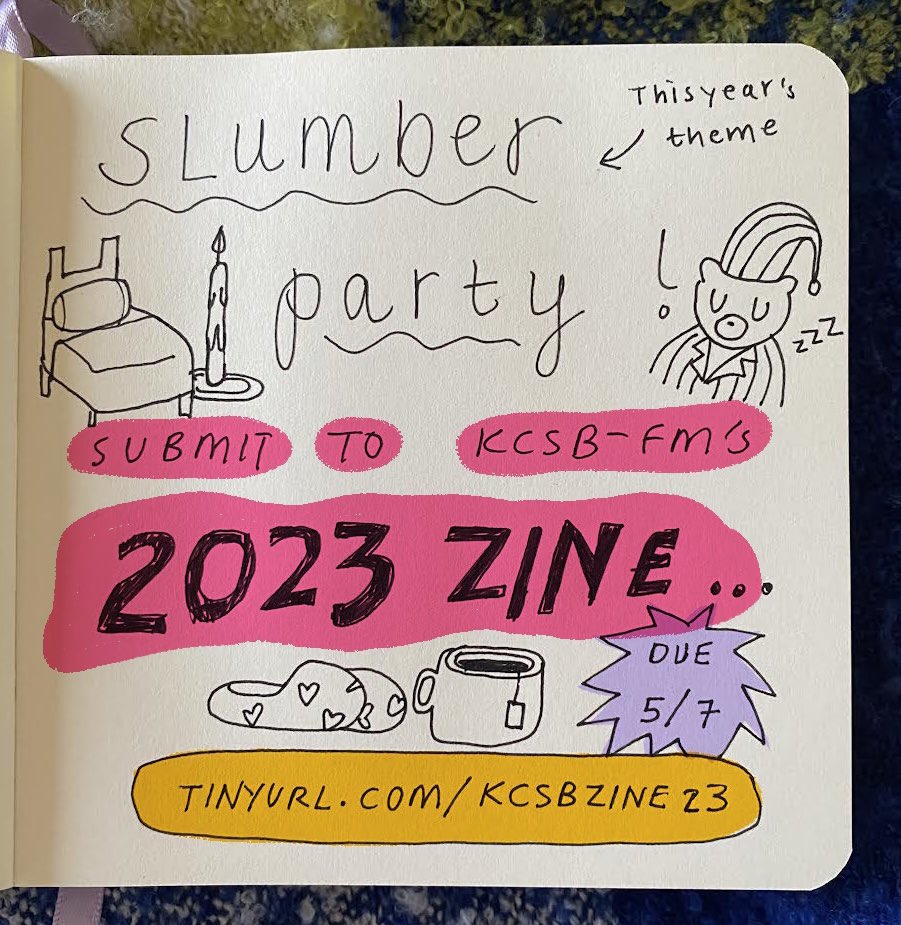 SLumber
This year's
theme
party
!
zzz
SUBMIT TO KCSB-FM'S
2023 ZINE...
DUE
5/7
TINYURL.COM/KCSBZINE23